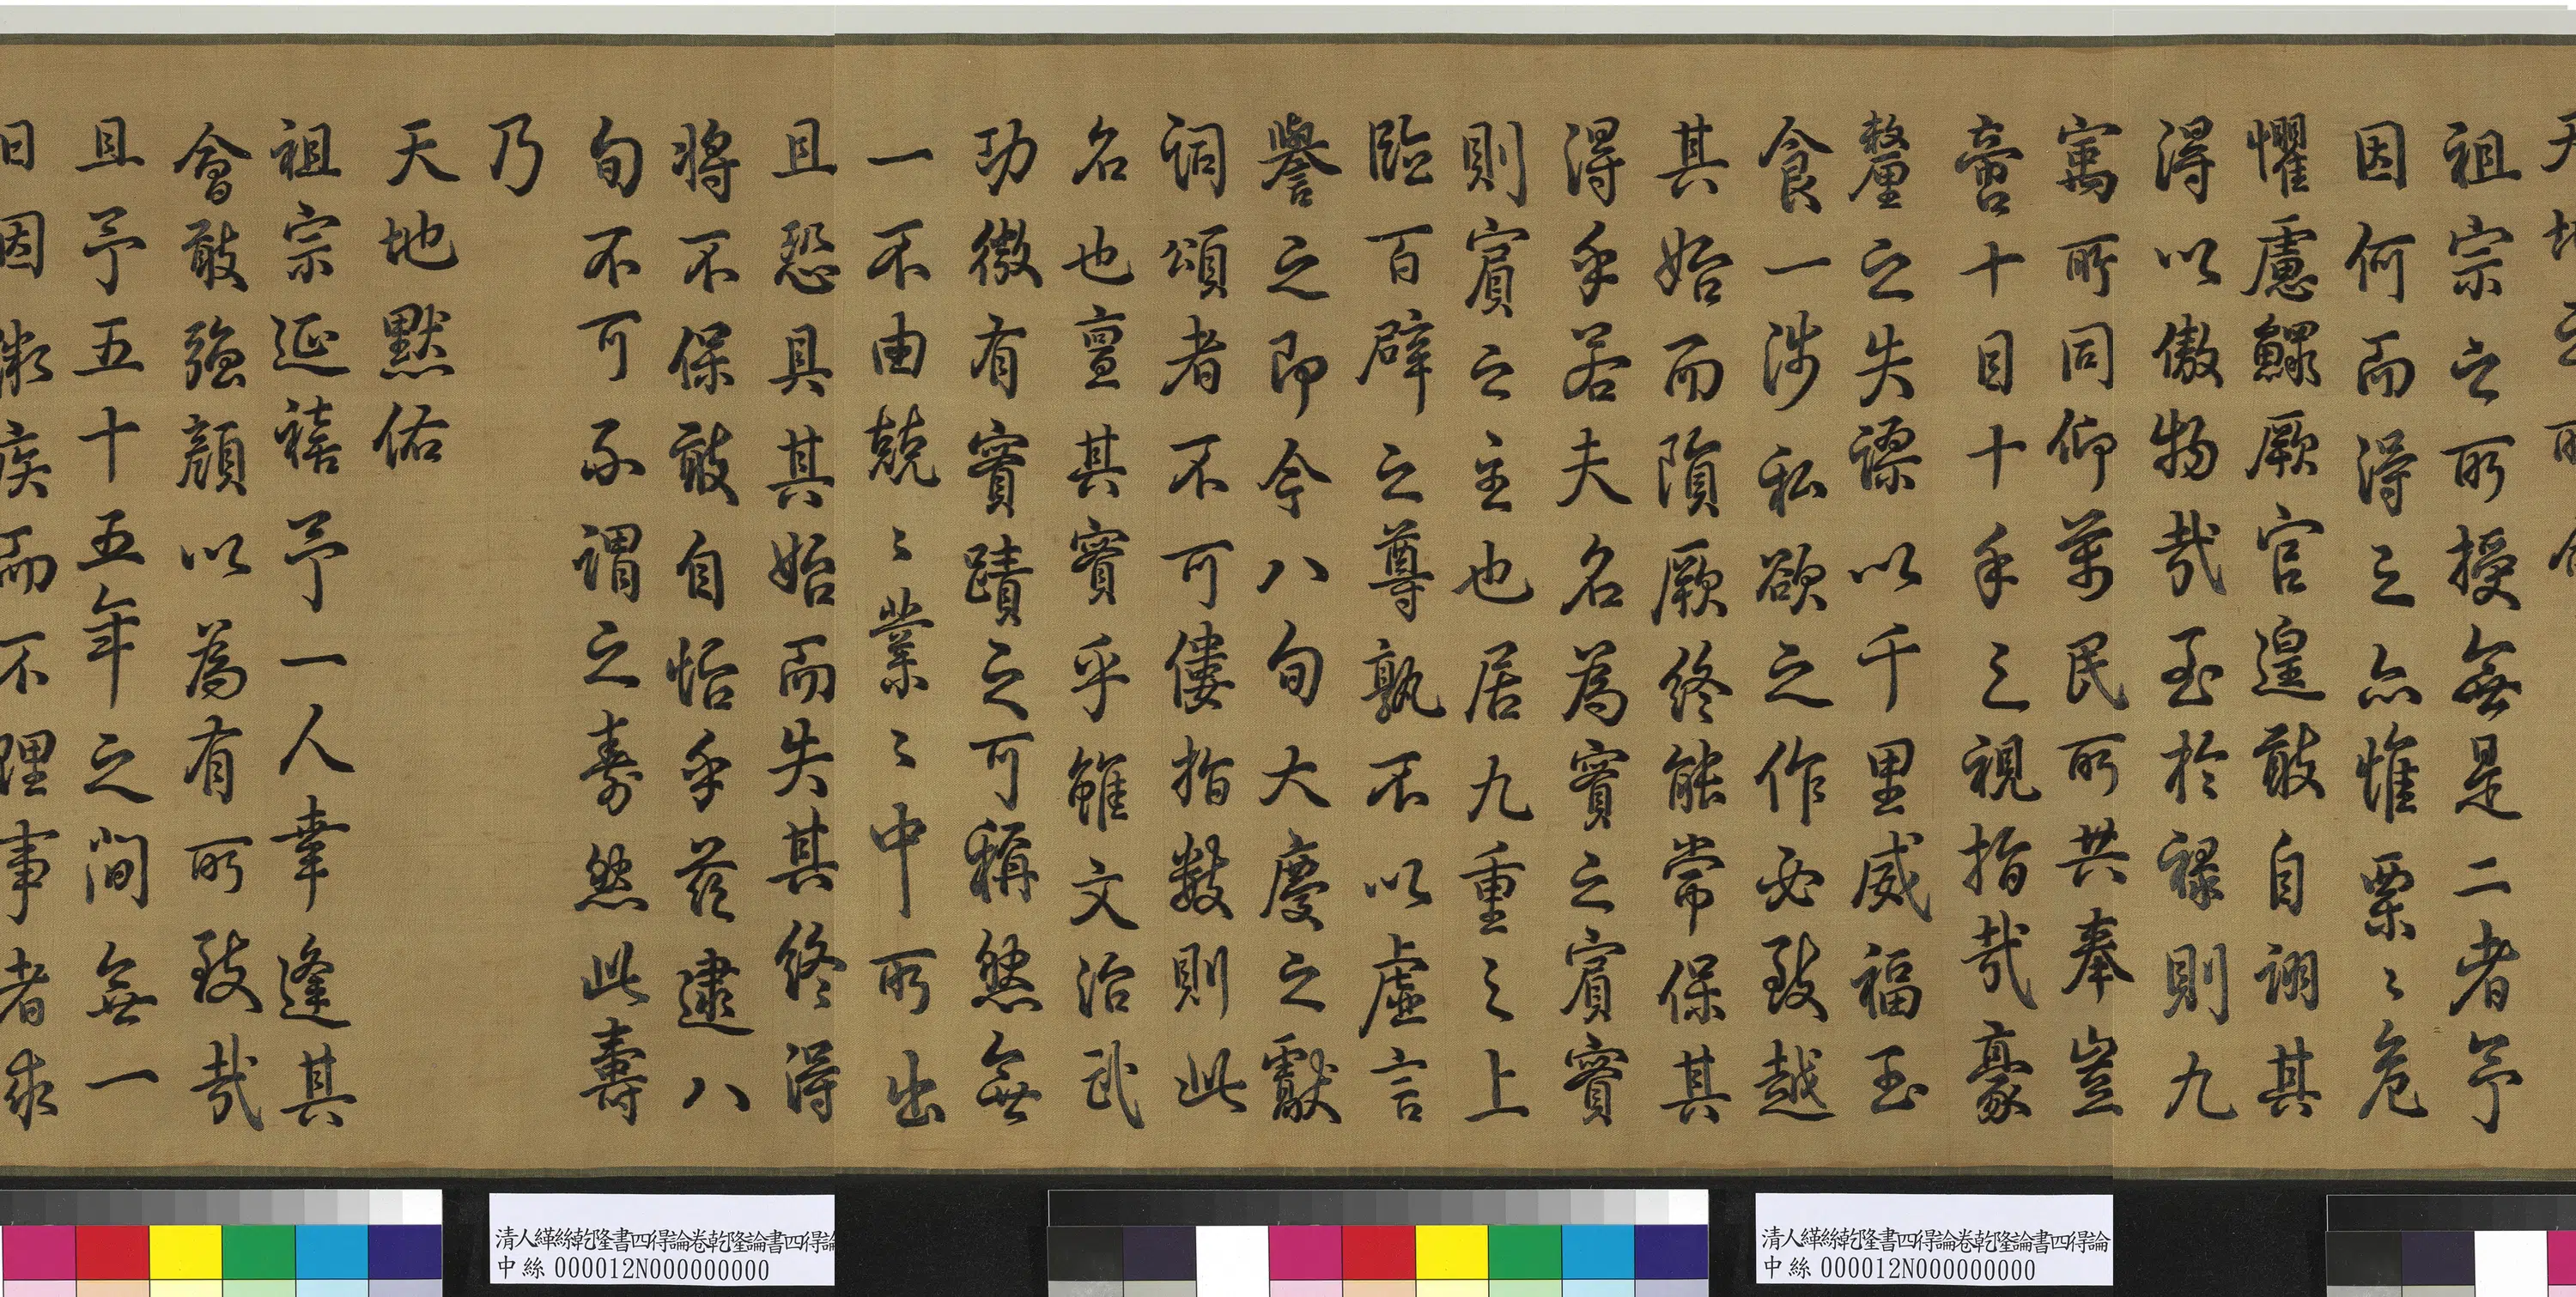 祖宗之所授無是二者予
因何而得之亦惟栗〻危
懼慮鰥厥官遑敢自詡其
得以傲物哉至於祿則九
寓所同仰萬民所共奉豈
啻十目十手之視指哉豪
釐之失謬以千里威福玉
食一涉私欲之作必致越
其始而隕厥終能常保其
得乎若夫名為實之賓實
則賓之主也居九重之上
臨百辟之尊孰不以虛言
譽之即今八旬大慶之獻
詞頌者不可僂指數則此
名也亶其實乎雖文治武
功徼有實蹟之可稱然無
一不由兢〻業〻中所出
且恐具其始而失其終得
將不保敢自怡乎茲逮八
旬不可不謂之壽然此壽
乃
天地默佑
祖宗延禧予一人幸逢其
會敢強顏以為有所致哉
且予五十五年之間無一
日因微疾而不理事者求
清人緙絲乾隆書四得論卷乾隆論書四得論
中絲 000012N000000000
清人緙絲乾隆書四得論卷乾隆論書四得論
中絲 000012N000000000